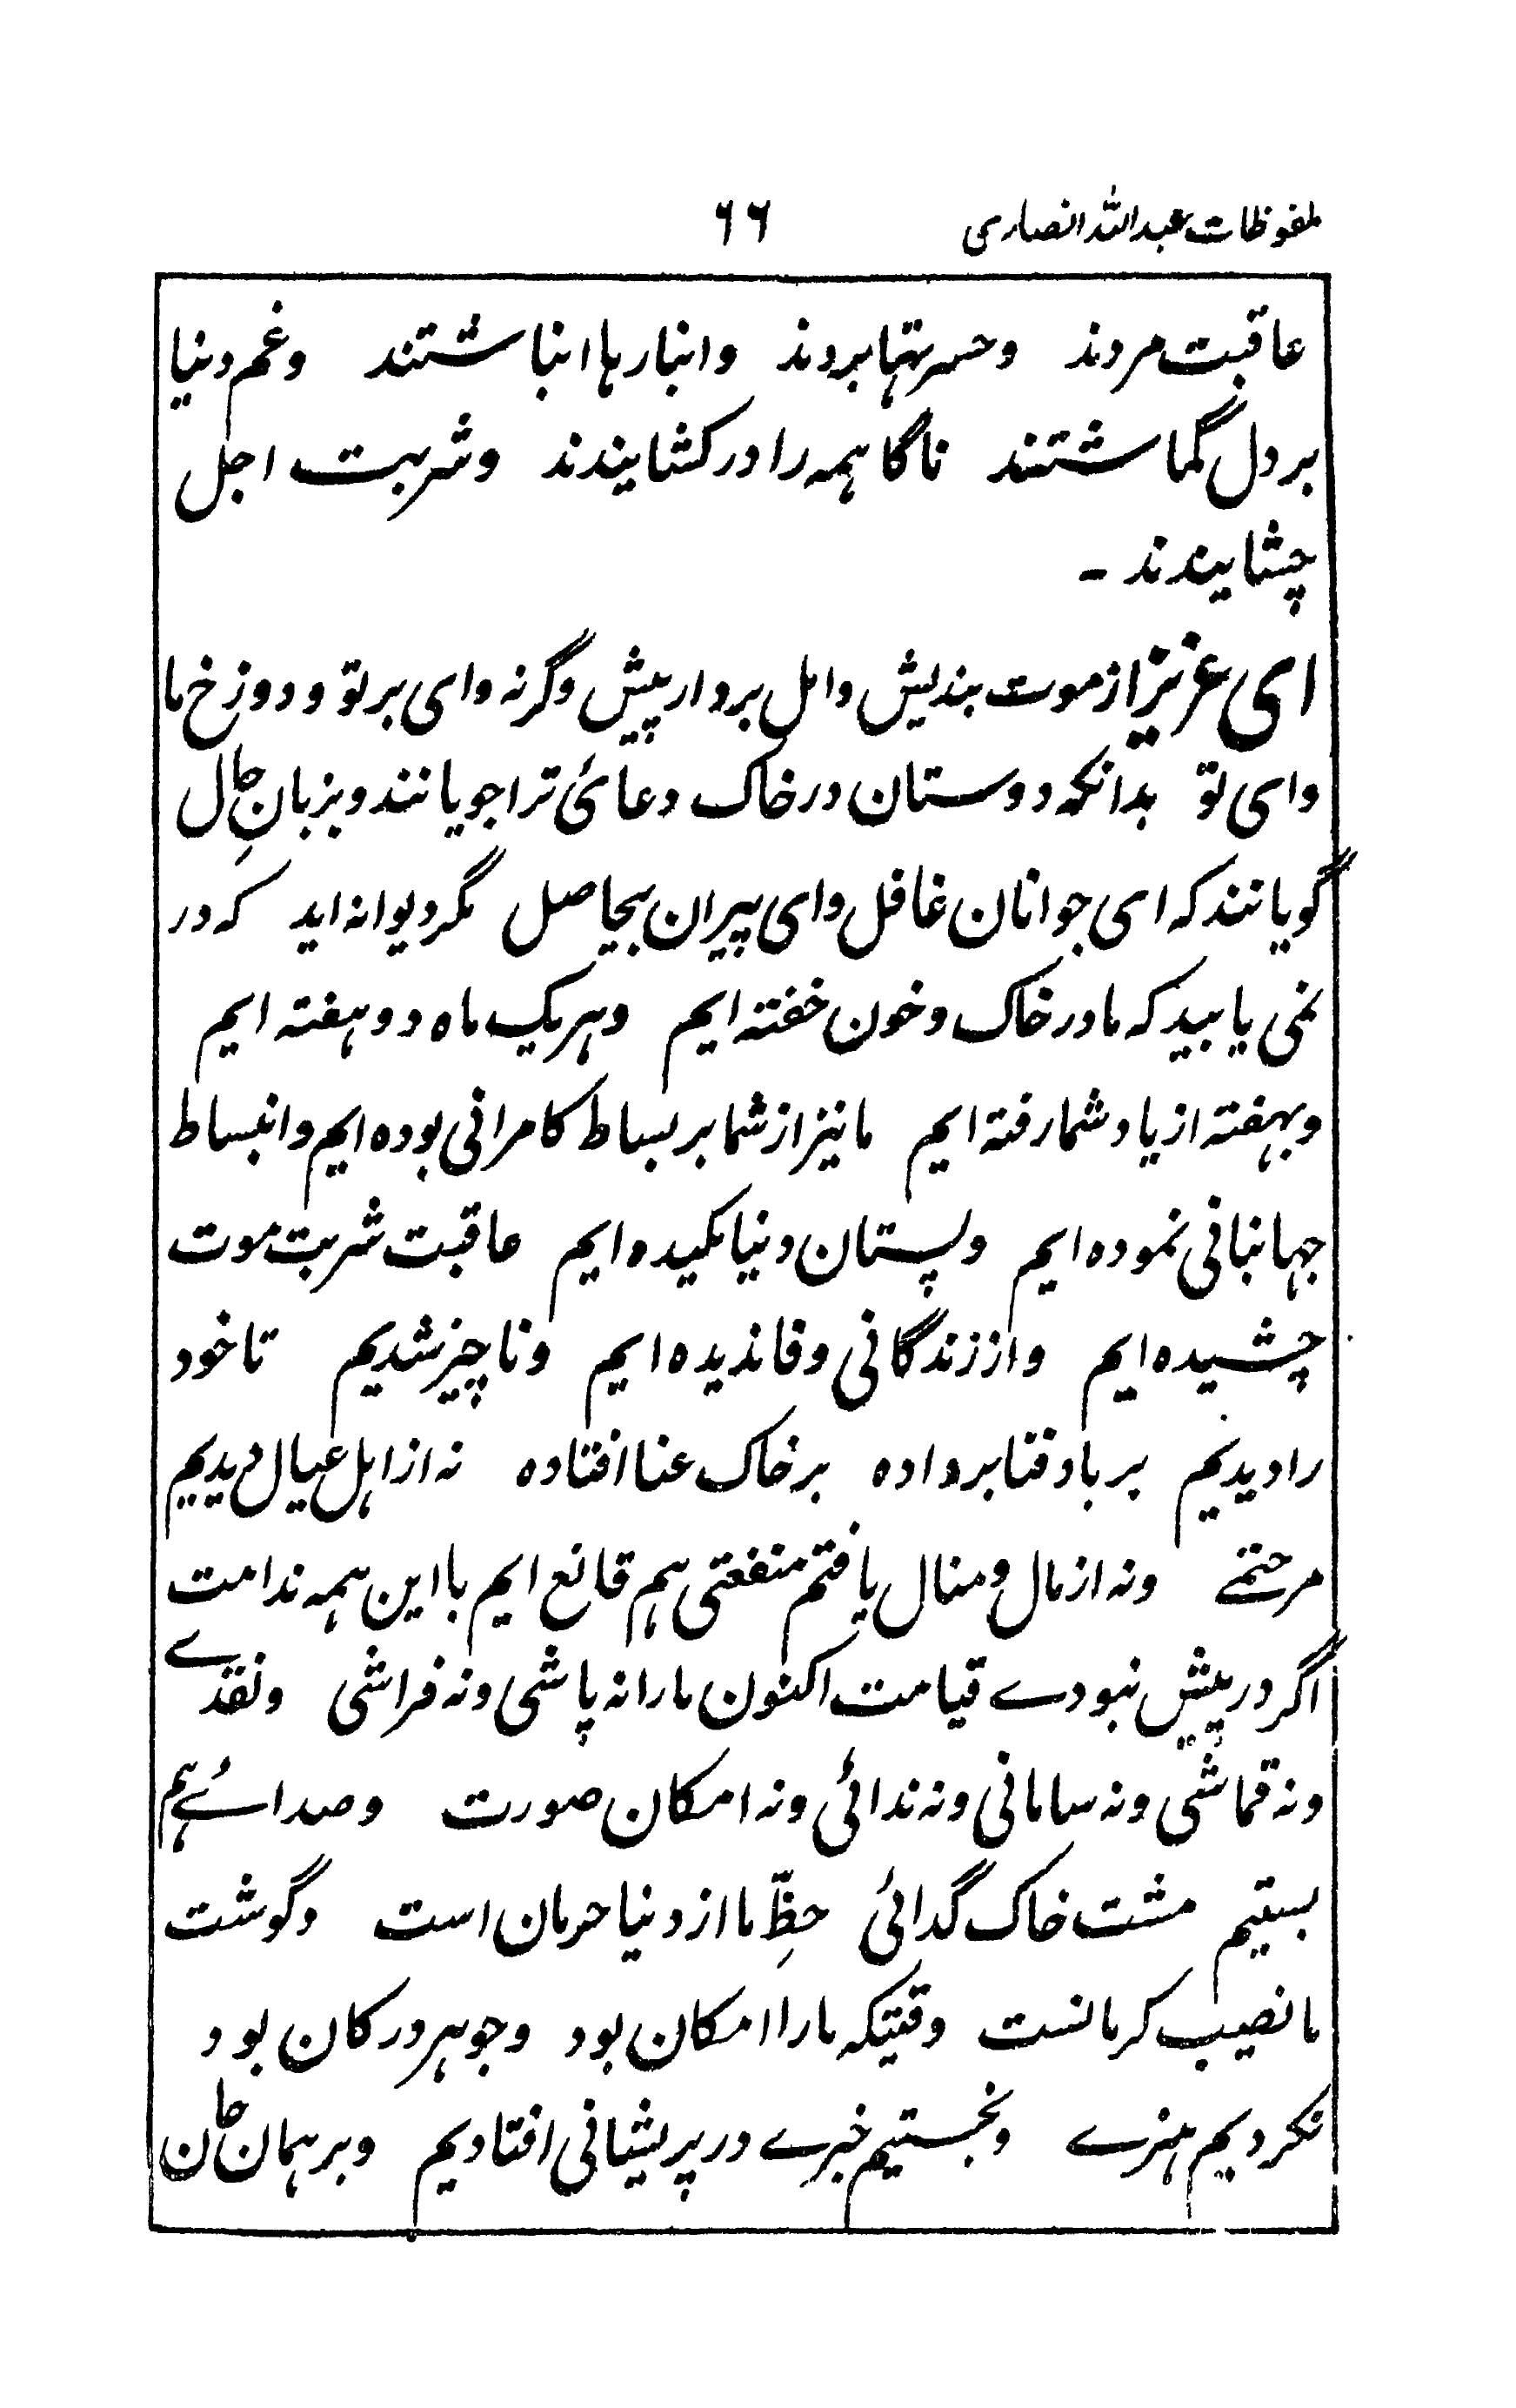 ملفوظات عبداللہ انصاری ۶۶
عاقبت مردند وحسرتہا بردند وانبارہا انباشتند وغم دنیا
بر دل گماشتند ناگاہمہ را درکشایندند وشربت اجل
چشایندند ۔
ای عزیز از موت بندیش وامل بردار پیش وگرنہ وای بر تو ودوزخ ما
وای تو بدانکہ دوستان در خاک دعائیٔ ترا جویانند وبزبانِ حال
گویانند کہ ای جوانان غافل وای پیران بیحاصل مگر دیوانہ اید کہ در
نمی یابید کہ ما در خاک وخون خفتہ ایم وہر یک ماہ دو ہفتہ ایم
وبہفتہ از یاد شما رفتہ ایم ما نیز از شما بر بساط کامرانی بودہ ایم وانبساط
جہانبانی نمودہ ایم وپستان دنیا مکیدہ ایم عاقبت شربت موت
چشیدہ ایم واز زندگانی وفا ندیدہ ایم وناچیز شدیم تا خود
را دیدیم بر باد فنا بر دادہ بر خاک عنا افتادہ نہ از اہل عیال دیدیم
مرحمتے ونہ از مال ومنال یافتم منفعتی ہم قانع ایم با این ہمہ ندامت
اگر در پیش نبودے قیامت اکنون ما را نہ پاشی ونہ فراشی ونقدے
ونہ قماشی ونہ سامانی ونہ ندائی ونہ امکان صورت وصداۓ ہم
بستیم مشت خاک گدائی حظِّ ما از دنیا حرمان است وگوشت
ما نصیب کرمانست وقتیکہ ما را امکان بود وجوہر در کان بود
نکردیم ہنرے ونجستیم خبرے در پریشانی افتادیم وبر ہمان جان